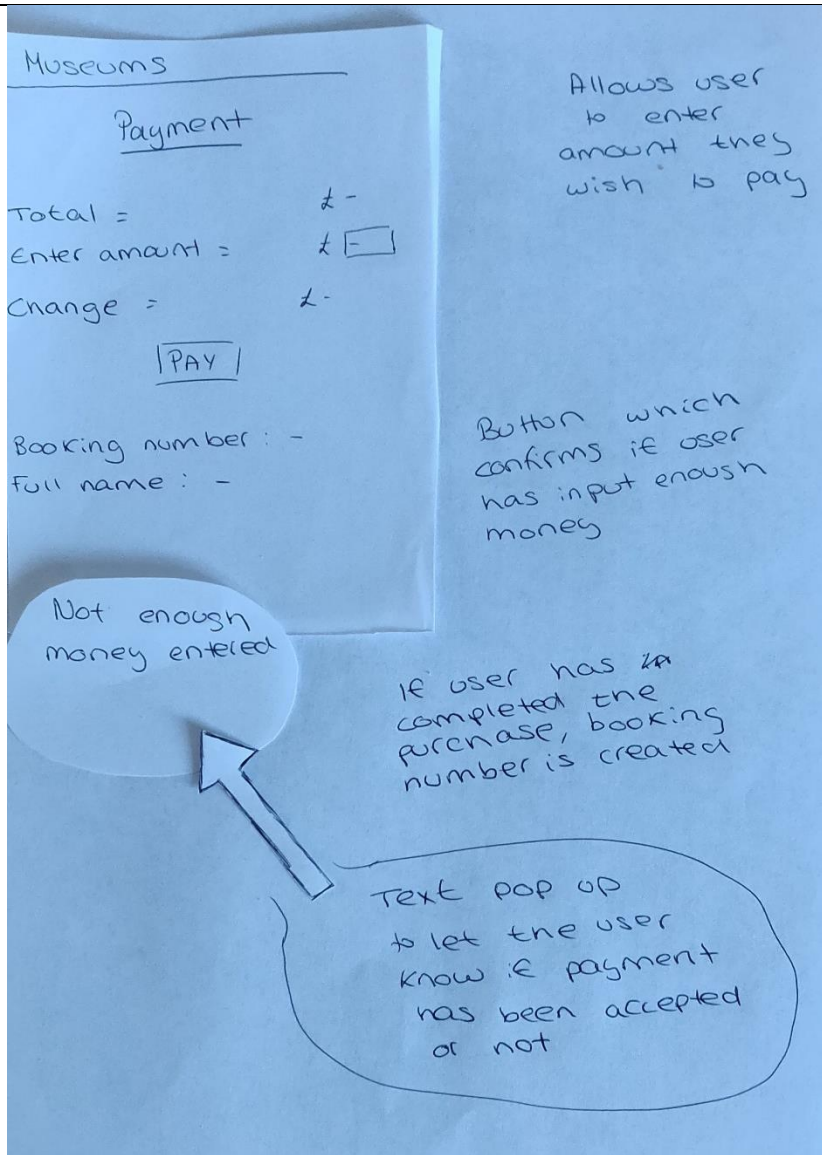 Museums
Payment
Total = £ -
Enter amount = £ -
Change = £ -
PAY
Booking number : -
Full name : -
Not enough
money entered
Allows user
to enter
amount they
wish to pay
Button which
confirms if user
has input enough
money
If user has
completed the
purchase, booking
number is created
Text pop up
to let the user
know if payment
has been accepted
or not